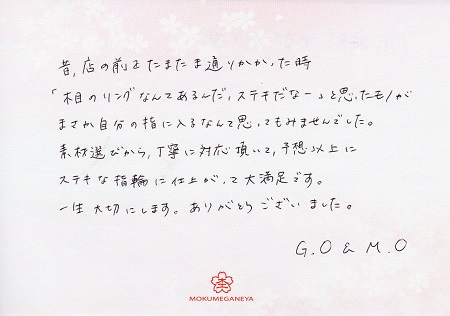 昔,店の前をたまたま通りかかった時
「木目のリングなんてあるんだ,ステキだなー」と思ったモノが
まさか自分の指に入るなんて思ってもみませんでした。
素材選びから,丁寧に対応頂いて,予想以上に
ステキな指輪に仕上がって大満足です。
一生大切にします。ありがとうございました。
G.O & M.O
MOKUMEGANEYA